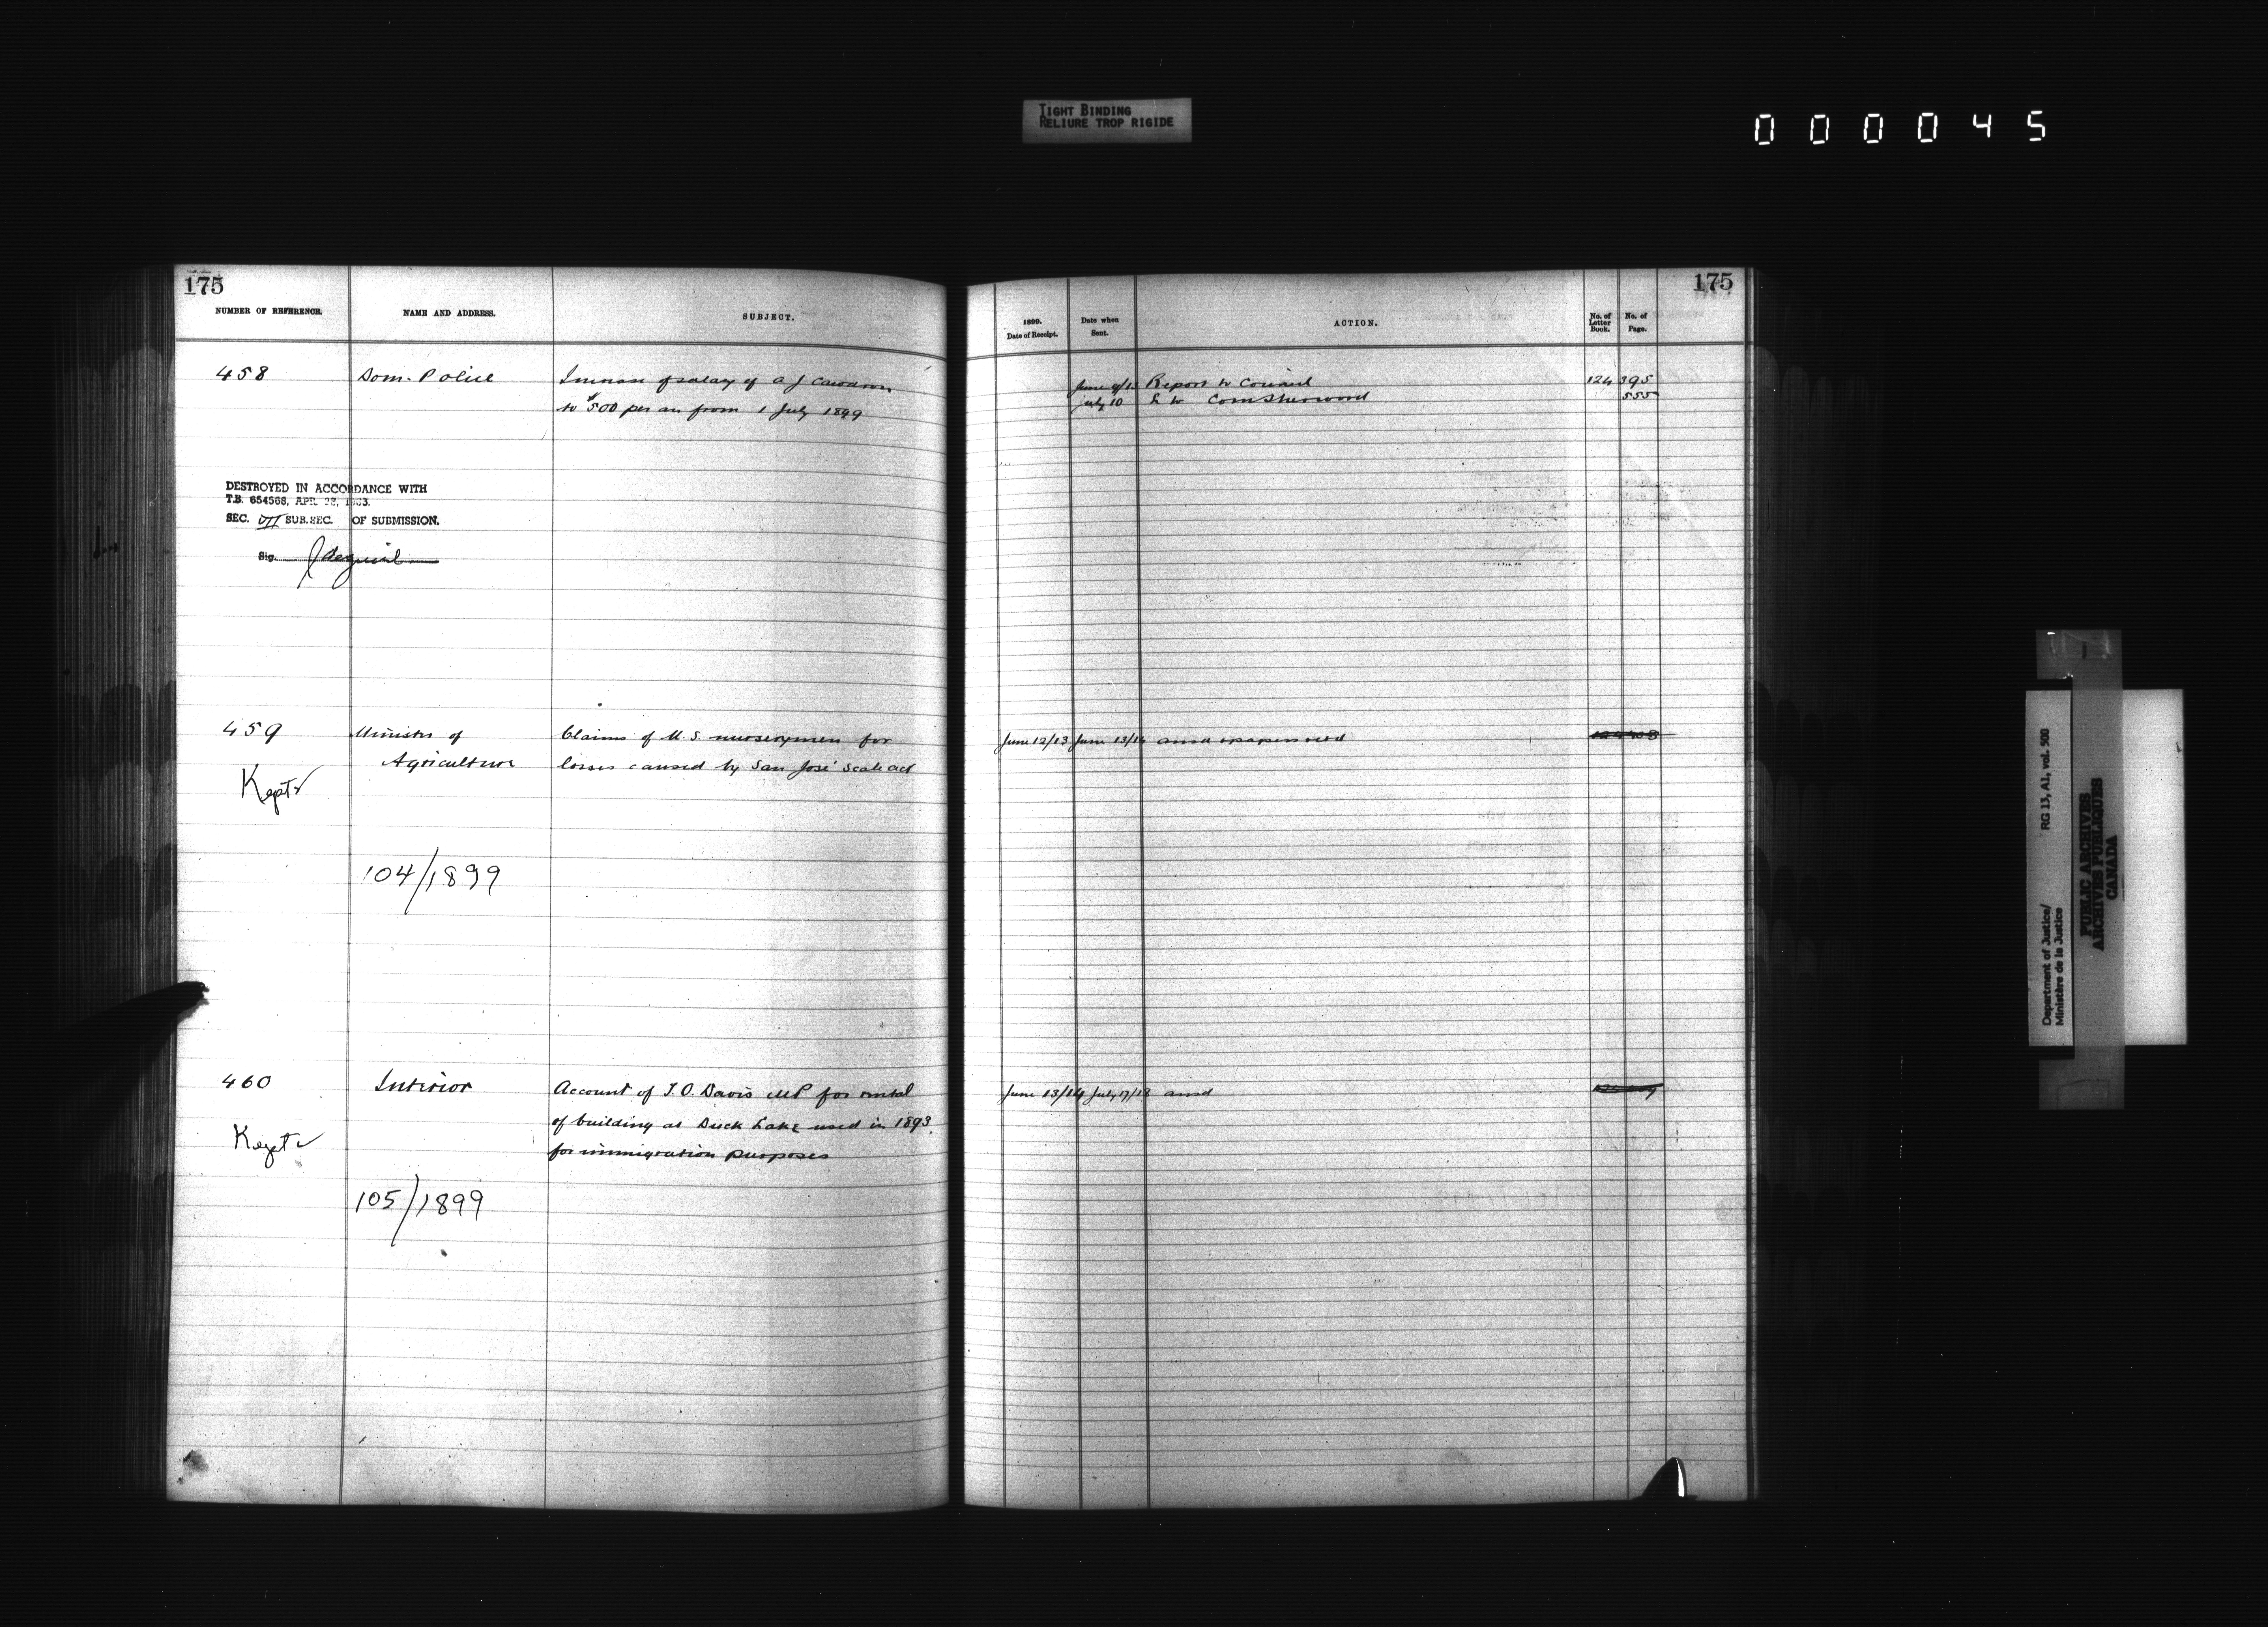 TIGHT BINDING
RELIURE TROP RIGIDE
000045
175
NUMBER OF REFERENCE. NAME AND ADDRESS. SUBJECT.
458 Dom. Police Increase of salary of A J
to $500 per an from 1 July 1899
DESTROYED IN ACCORDANCE WITH
T.B. 654568, APR. 1963.
SEC. VII SUB.SEC. OF SUBMISSION.
Sig.
459 Minister of Claims of U.S. nurserymen for
Agriculture losses caused by San José Scale act
Kept
104/1899
460 Interior Account of T.O. Davis MP for rental
of building at Duck Lake used in 1893
Kept for immigration purposes
105/1899
175
1899. Date of Receipt. Date when Sent. ACTION. No. of Letter Book. No. of Page.
June 9/13 Report to Council 124 395
July 10 L to Com Sherwood 555
June 12/13 June 13/14 ansd papers retd
June 13/14 July 17/18 ansd
Department of Justice/ RG 13, A1, vol. 500
Ministère de la Justice
PUBLIC ARCHIVES
ARCHIVES PUBLIQUES
CANADA